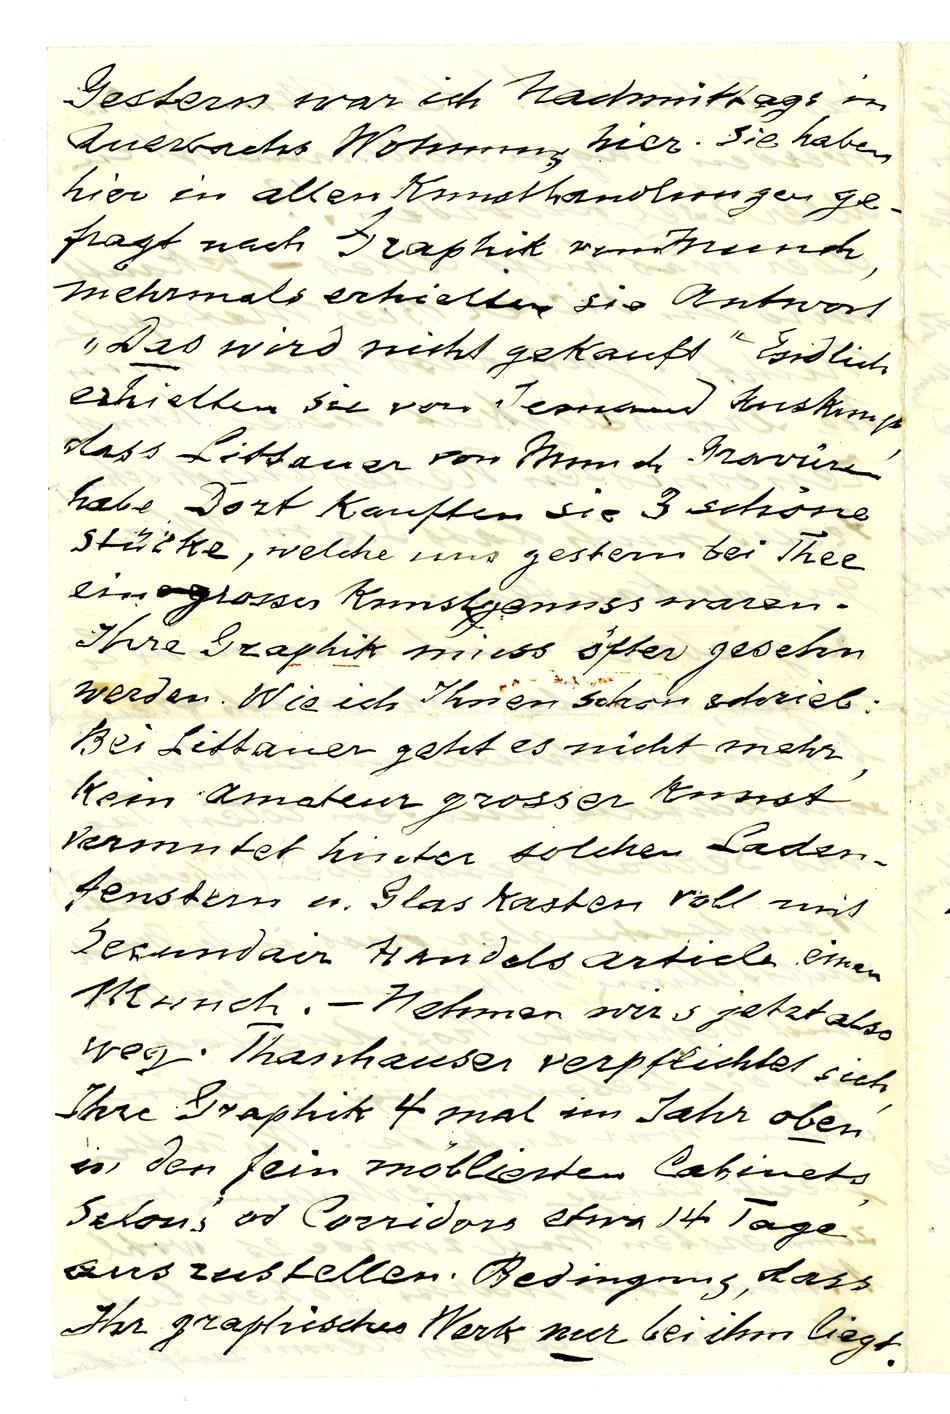 Gestern war ich Nachmittags in
Auerbachs Wohnung hier. Sie haben
hier in allen Kunsthandlungen ge-
fragt nach Graphik von Munch,
mehrmals erhielten sie Antwort
„Das wird nicht gekauft“ Endlich
erhielten sie von Jemand Auskunft,
dass Littauer von Munch Gravüren
habe. Dort kauften sie 3 schöne
Stücke, welche uns gestern bei Thee
ein grosser Kunstgenuss waren.
Ihre Graphik muss öfter gesehn
werden. Wie ich Ihnen schon schrieb:
Bei Littauer geht es nicht mehr,
Kein Amateur grosser Kunst
vermutet hinter solchen Laden-
fenstern u. Glaskasten voll mit
Secundair Handelsarticle einen
Munch. – Nehmen wir's jetzt also
weg. Thanhauser verpflichtet sich,
Ihre Graphik 4 mal im Jahr oben
in den fein möblierten Cabinets,
Salons od Corridors etwa 14 Tage
auszustellen. Bedingung, dass
Ihr graphisches Werk nur bei ihm liegt.